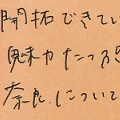 開拓できてい
魅力たっぷ
奈良について